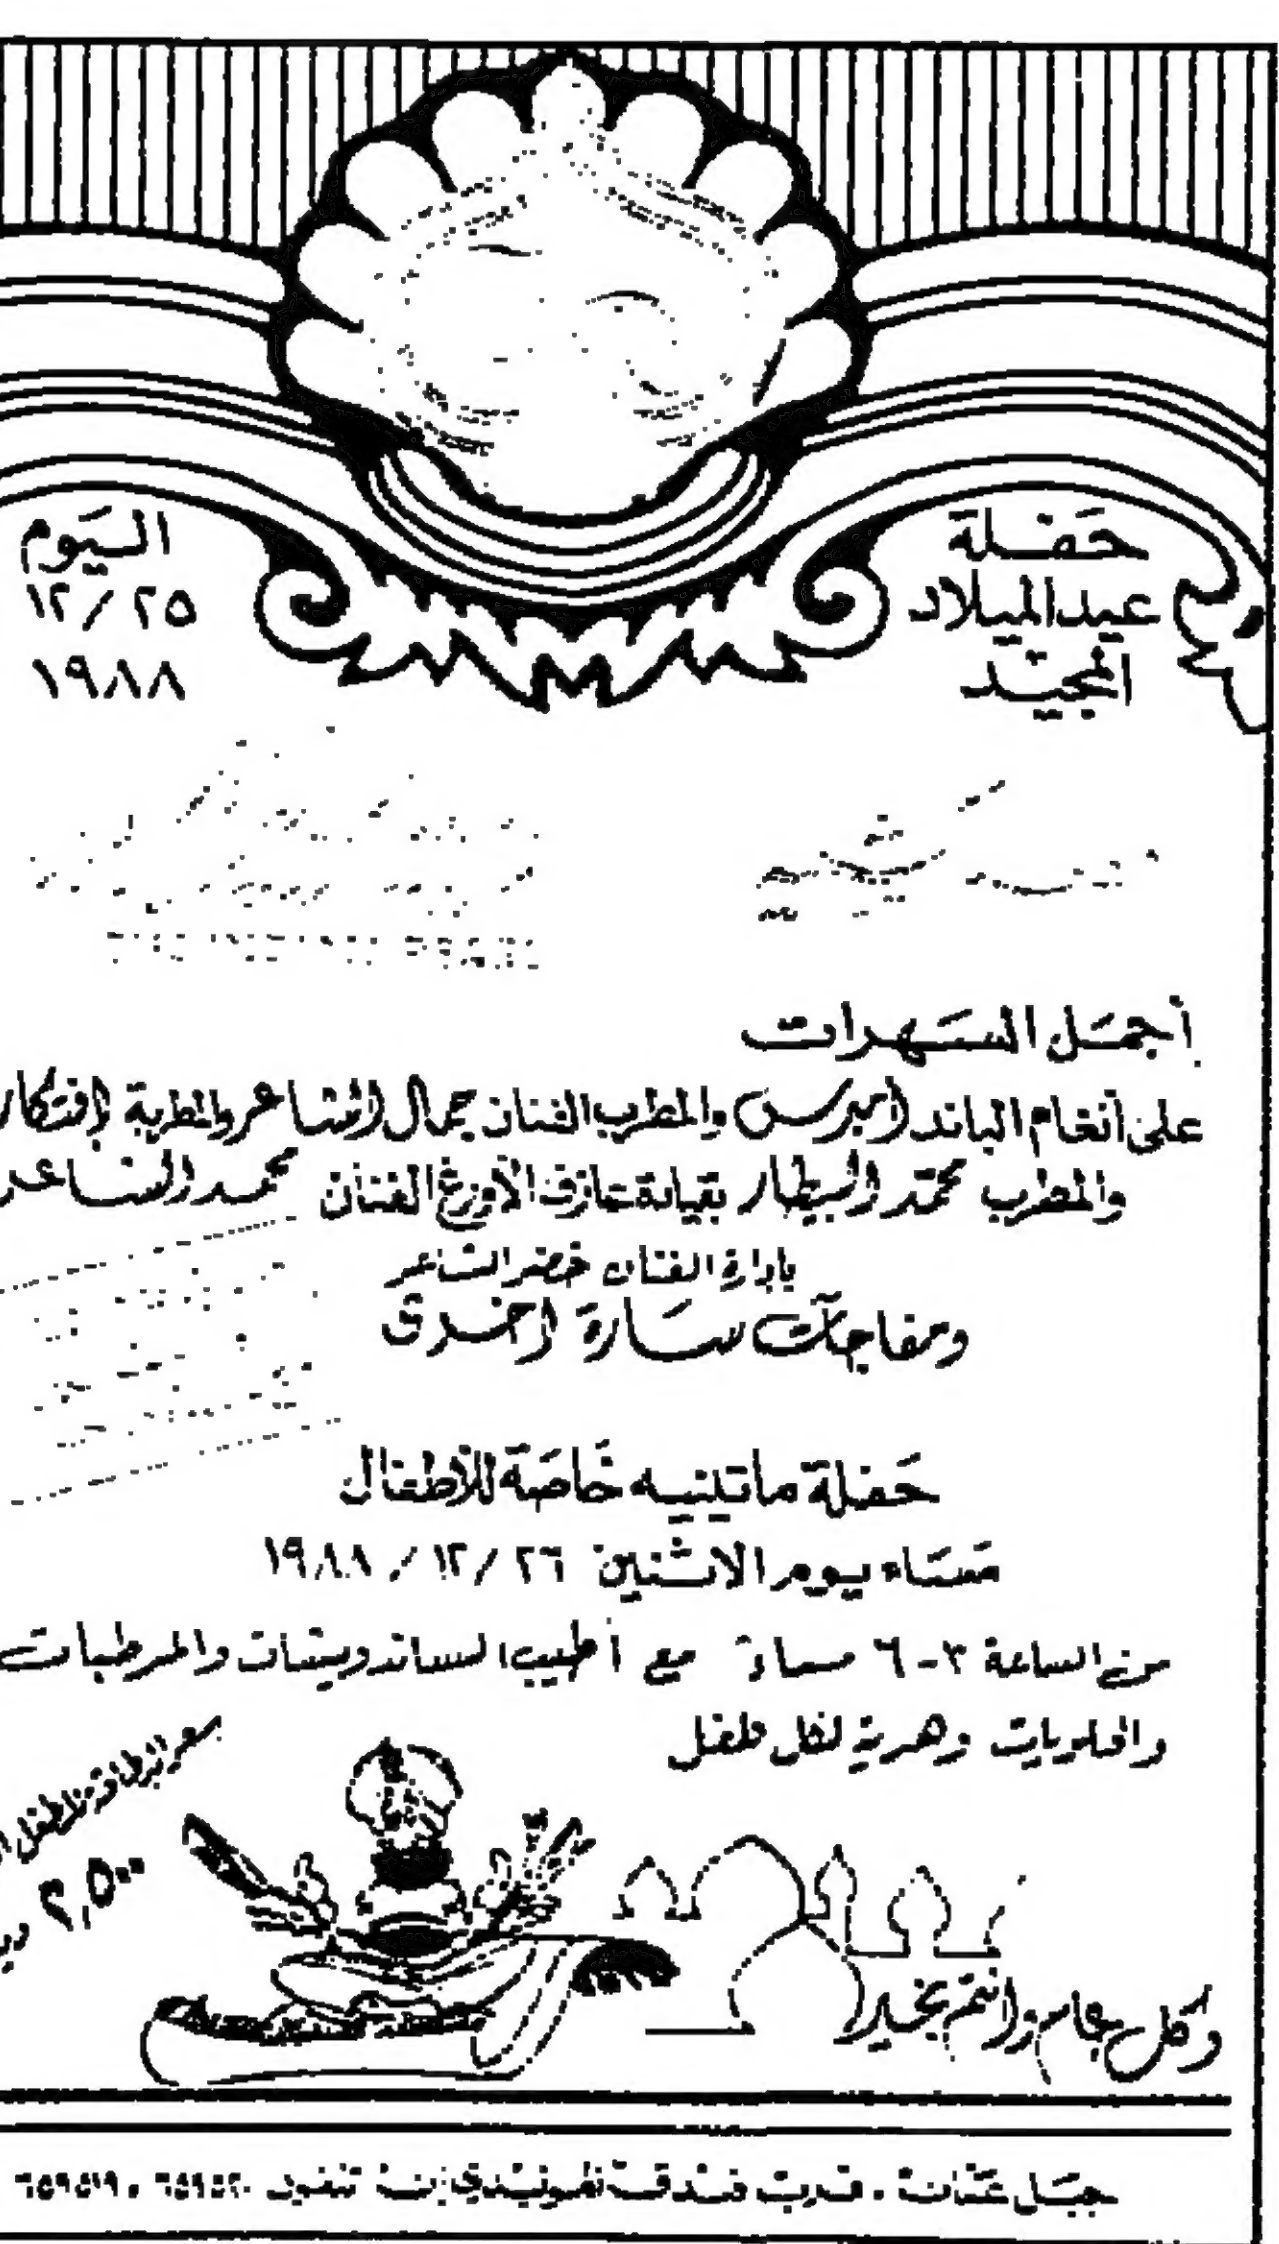 حَفلة
عيد الميلاد
المجيد
اليَوم
١٢/٢٥
١٩٨٨
أجمَل السَهرات
على أنغام الباند امبرس والمطرب الفنان جمال الشاعر والمطربة إفتكار
والمطرب محمّد البيطار بقيادة عازف الأورغ الفنان محمد الشاعر
بإدارة الفنان خضر الشاعر
ومفاجآت سَارة اخرى
حَفلة ماتينيه خَاصَة للأطفال
مَسَاء يوم الاثنين ١٢/٢٦/ ١٩٨٨
من الساعة ٣-٦ مساءً مع أطيب الساندويشات والمرطبات
والحلويات وهدية لكل طفل
سعر البطاقة للأطفال
٢,٥٠٠
وكل عام وانتم بخير
جبَل عمّان . قرب فندق تلفون ٦٥٩٥٢٠ ، ٦٥٩٥١٩